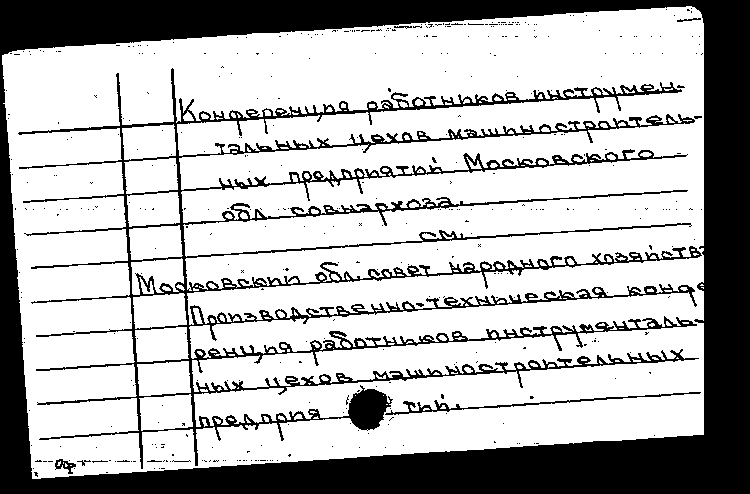 Конференция работников инструмен-
тальных цехов машиностроитель-
ных предприятий Московского
обл. совнархоза.
см.
Московский обл. совет народного хозяйства
Производственно-техническая конфе
ренция работников инструменталь-
ных цехов машиностроительных
предприя тий.